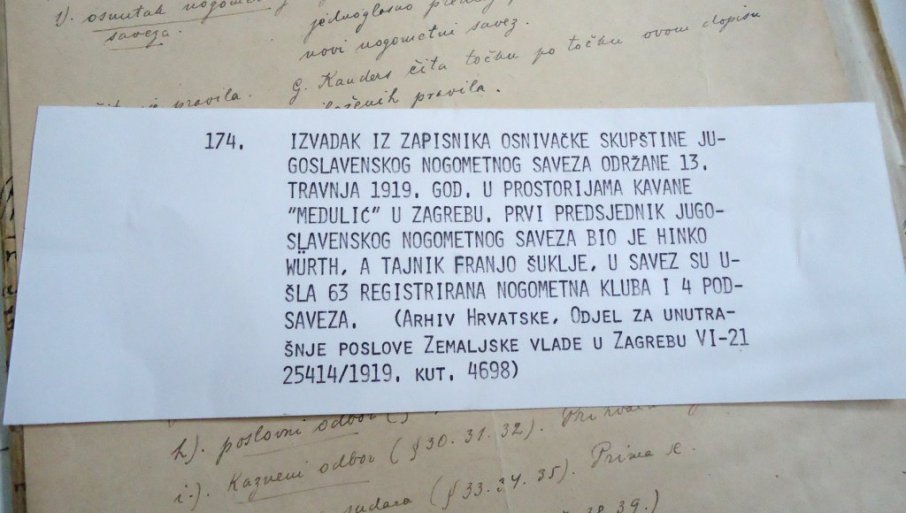 1). osnutak nogometnog
saveza.
jednoglasno
novi nogometni savez.
pravila. G. Kauders čita točku po točku ovom dopisu
pravila.
174. IZVADAK IZ ZAPISNIKA OSNIVAČKE SKUPŠTINE JU-
GOSLAVENSKOG NOGOMETNOG SAVEZA ODRŽANE 13.
TRAVNJA 1919. GOD. U PROSTORIJAMA KAVANE
"MEDULIĆ" U ZAGREBU. PRVI PREDSJEDNIK JUGO-
SLAVENSKOG NOGOMETNOG SAVEZA BIO JE HINKO
WÜRTH, A TAJNIK FRANJO ŠUKLJE. U SAVEZ SU U-
ŠLA 63 REGISTRIRANA NOGOMETNA KLUBA I 4 POD-
SAVEZA. (ARHIV HRVATSKE, ODJEL ZA UNUTRA-
ŠNJE POSLOVE ZEMALJSKE VLADE U ZAGREBU VI-21
25414/1919. KUT. 4698)
h). poslovni odbor
(§30. 31. 32).
i). Kazneni odbor (§33. 34. 35). Prima se.
sudaca
38. 39.)